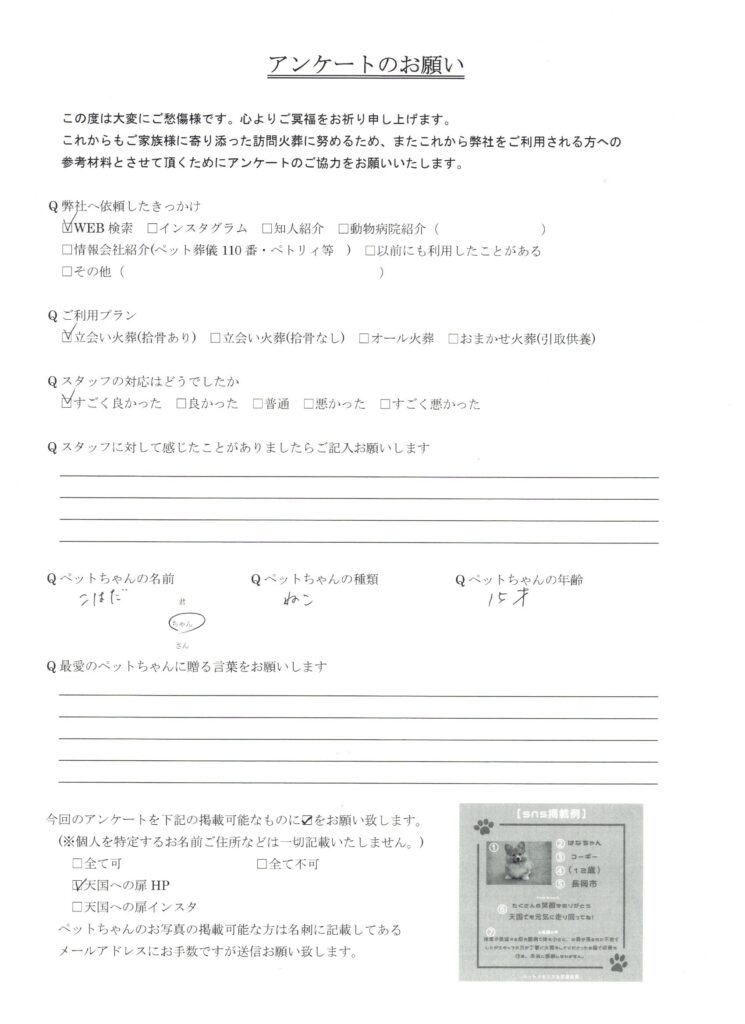 アンケートのお願い
この度は大変にご愁傷様です。心よりご冥福をお祈り申し上げます。
これからもご家族様に寄り添った訪問火葬に努めるため、またこれから弊社をご利用される方への
参考材料とさせて頂くためにアンケートのご協力をお願いいたします。
Q 弊社へ依頼したきっかけ
☑WEB 検索 □インスタグラム □知人紹介 □動物病院紹介（ ）
□情報会社紹介(ペット葬儀 110 番・ペトリィ等 ) □以前にも利用したことがある
□その他（ ）
Q ご利用プラン
☑立会い火葬(拾骨あり) □立会い火葬(拾骨なし) □オール火葬 □おまかせ火葬(引取供養)
Q スタッフの対応はどうでしたか
☑すごく良かった □良かった □普通 □悪かった □すごく悪かった
Q スタッフに対して感じたことがありましたらご記入お願いします
Q ペットちゃんの名前 Q ペットちゃんの種類 Q ペットちゃんの年齢
こはだ ねこ 15才
君
ちゃん
さん
Q 最愛のペットちゃんに贈る言葉をお願いします
今回のアンケートを下記の掲載可能なものに☑をお願い致します。
(※個人を特定するお名前ご住所などは一切記載いたしません。)
□全て可 □全て不可
☑天国への扉 HP
□天国への扉インスタ
ペットちゃんのお写真の掲載可能な方は名刺に記載してある
メールアドレスにお手数ですが送信お願い致します。
【sns掲載例】
① ② はなちゃん
③ コーギー
④ (12歳)
⑤ 長岡市
⑥ たくさんの笑顔をありがとう
天国でも元気に走り回ってね!
⑦